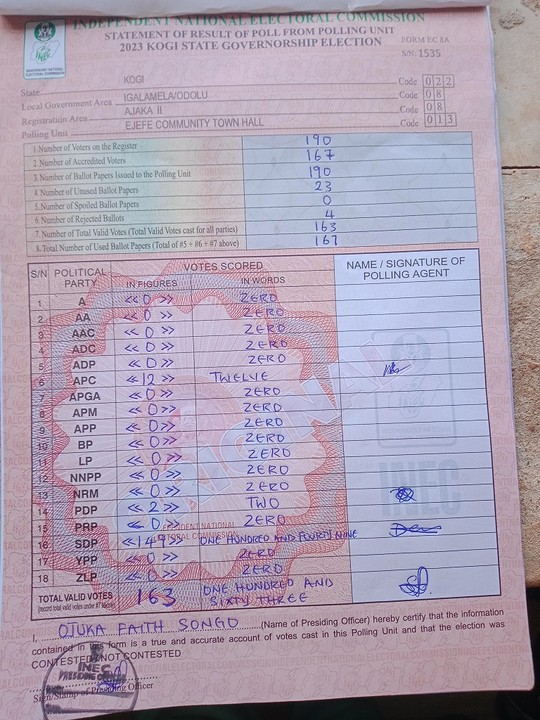 INDEPENDENT NATIONAL ELECTORAL COMMISSION
STATEMENT OF RESULT OF POLL FROM POLLING UNIT FORM EC 8A
2023 KOGI STATE GOVERNORSHIP ELECTION S/N: 1535
State KOGI Code 0 2 2
Local Government Area IGALAMELA/ODOLU Code 0 8
Registration Area AJAKA II Code 0 8
Polling Unit EJEFE COMMUNITY TOWN HALL Code 0 1 3
1. Number of Voters on the Register 190
2. Number of Accredited Voters 167
3. Number of Ballot Papers Issued to the Polling Unit 190
4. Number of Unused Ballot Papers 23
5. Number of Spoiled Ballot Papers 0
6. Number of Rejected Ballots 4
7. Number of Total Valid Votes (Total Valid Votes cast for all parties) 163
8. Total Number of Used Ballot Papers (Total of #5 + #6 + #7 above) 167
S/N POLITICAL PARTY VOTES SCORED NAME / SIGNATURE OF POLLING AGENT
IN FIGURES IN WORDS
1. A << 0 >> ZERO
2 AA << 0 >> ZERO
3 AAC << 0 >> ZERO
4 ADC << 0 >> ZERO
5 ADP << 0 >> ZERO
6 APC << 12 >> TWELVE
7 APGA << 0 >> ZERO
8 APM << 0 >> ZERO
9 APP << 0 >> ZERO
10 BP << 0 >> ZERO
11 LP << 0 >> ZERO
12 NNPP << 0 >> ZERO
13 NRM << 0 >> ZERO
14 PDP << 2 >> TWO
15 PRP << 0 >> ZERO
16 SDP <<149>> ONE HUNDRED AND FOURTY NINE
17 YPP << 0 >> ZERO
18 ZLP << 0 >> ZERO
TOTAL VALID VOTES 163 ONE HUNDRED AND SIXTY THREE
ORIGINAL
INEC
I, OJUKA FAITH SONGO (Name of Presiding Officer) hereby certify that the information
contained in this form is a true and accurate account of votes cast in this Polling Unit and that the election was
CONTESTED / NOT CONTESTED
INEC
PRESIDING OFFICER
Sign/Stamp of Presiding Officer